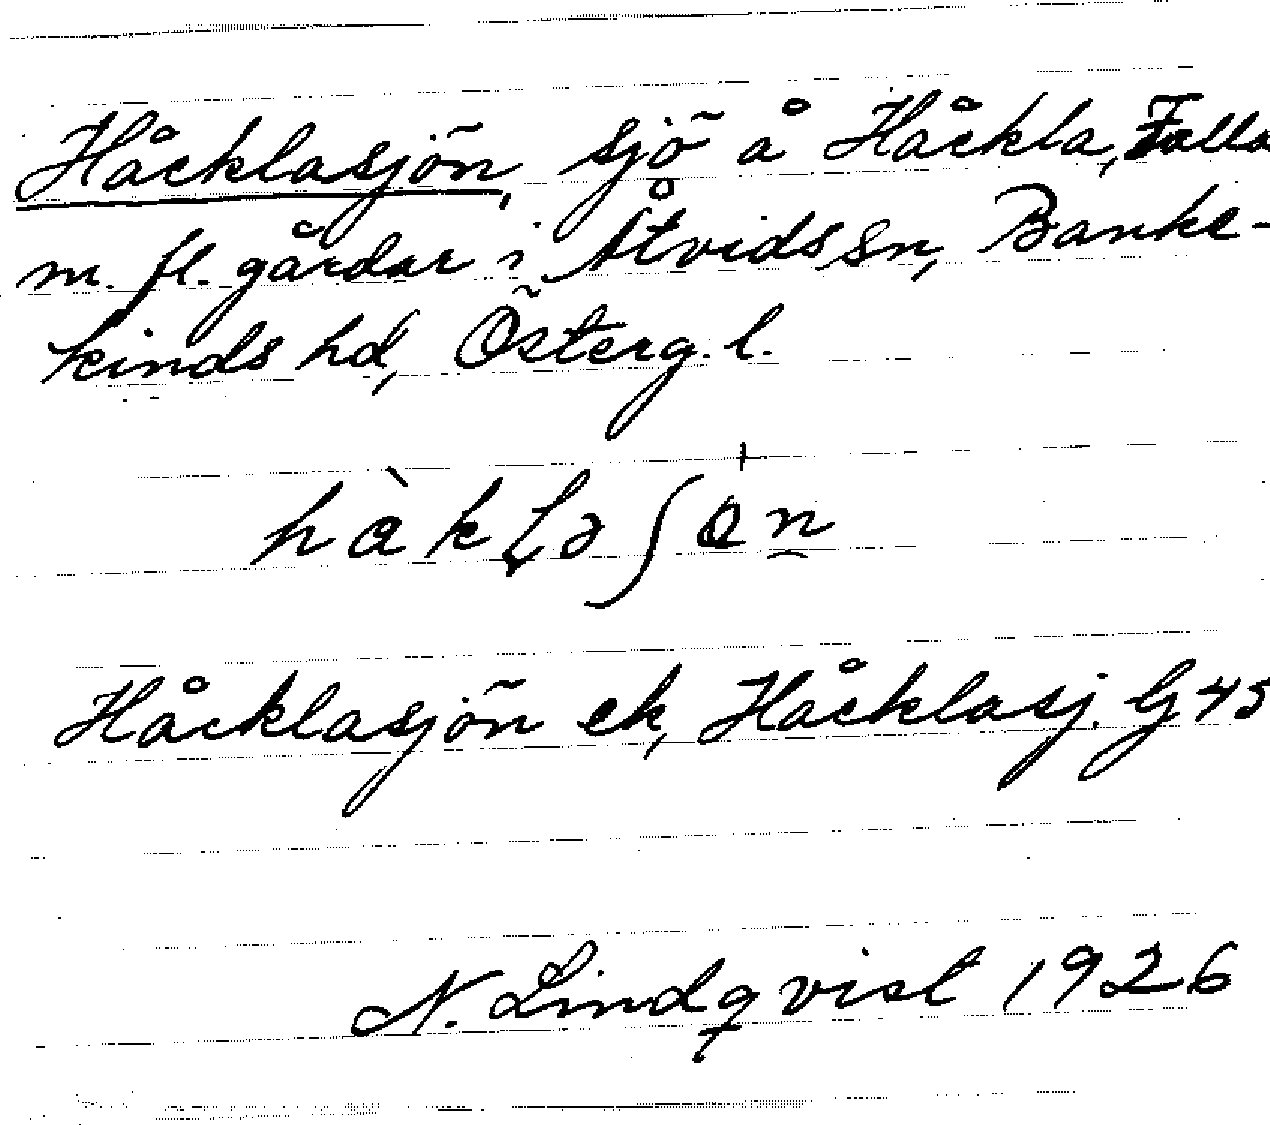 Håcklasjön, sjö å Håckla, Falla
m. fl. gårdar i Åtvids sn, Banke-
kinds hd, Österg. l.
Håcklasjön ek, Håcklasj. G 45
N. Lindqvist 1926